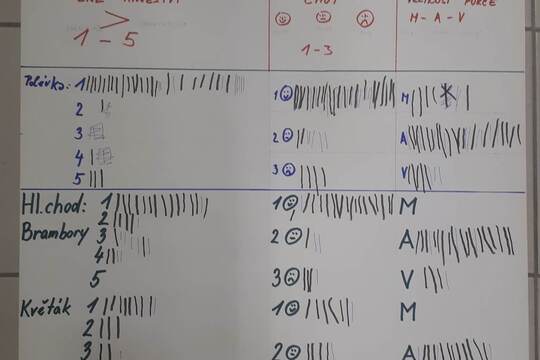 1 - 5
1 - 3
M - A - V
Polévka: 1 1 M
2
3 2 A
4
5 3 V
Hl. chod: 1 1 M
2
Brambory 3 2 A
4
5 3 V
Květák 1 1 M
2
3 2 A